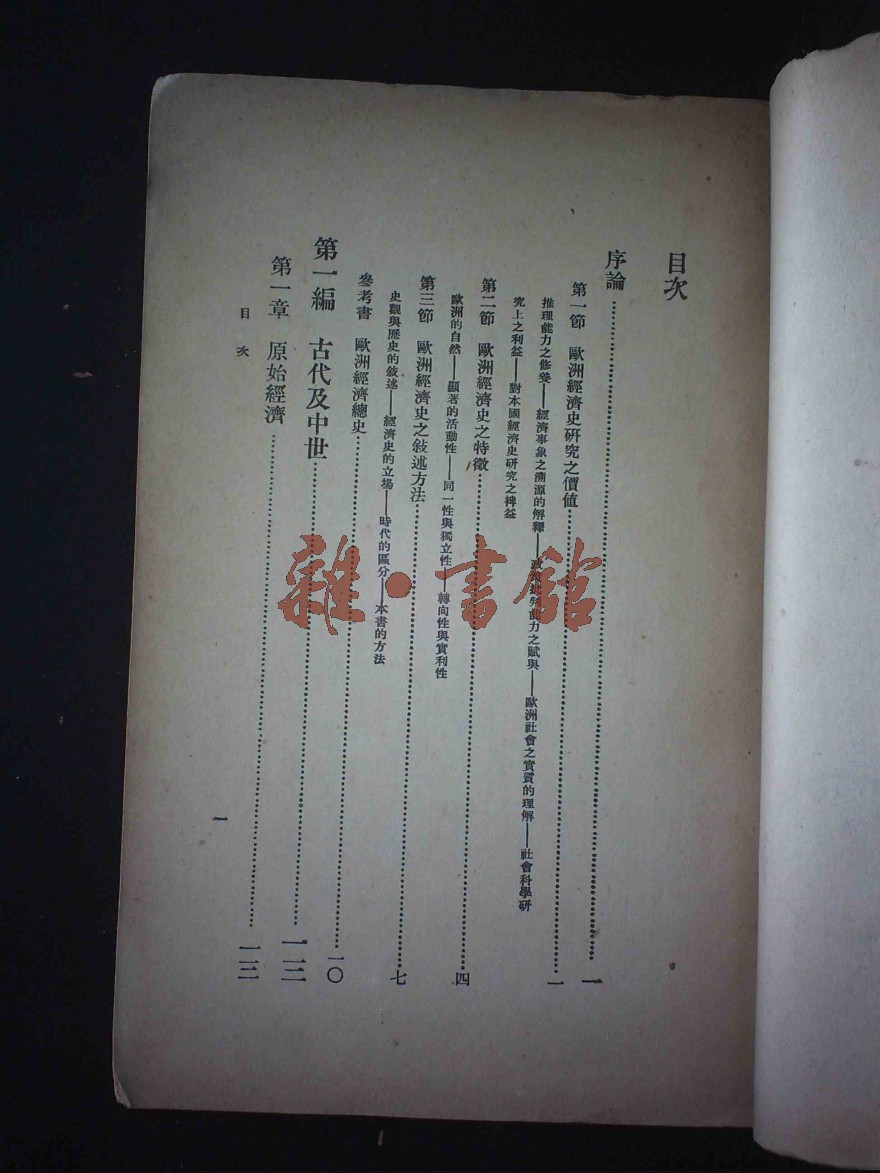 目次
序論……一
第一節　歐洲經濟史研究之價値……一
推理能力之修養——經濟事象之溯源的解釋——政策批判能力之賦與——歐洲社會之實質的理解——社會科學研
究上之利益——對本國經濟史研究之裨益
第二節　歐洲經濟史之特徵……四
歐洲的自然——顯著的活動性——同一性與獨立性——轉向性與實利性
第三節　歐洲經濟史之敍述方法……七
史觀與歷史的敍述——經濟史的立場——時代的區分——本書的方法
參考書　歐洲經濟總史……一〇
第一編　古代及中世……一三
第一章　原始經濟……一三
目次
一
雜·書館